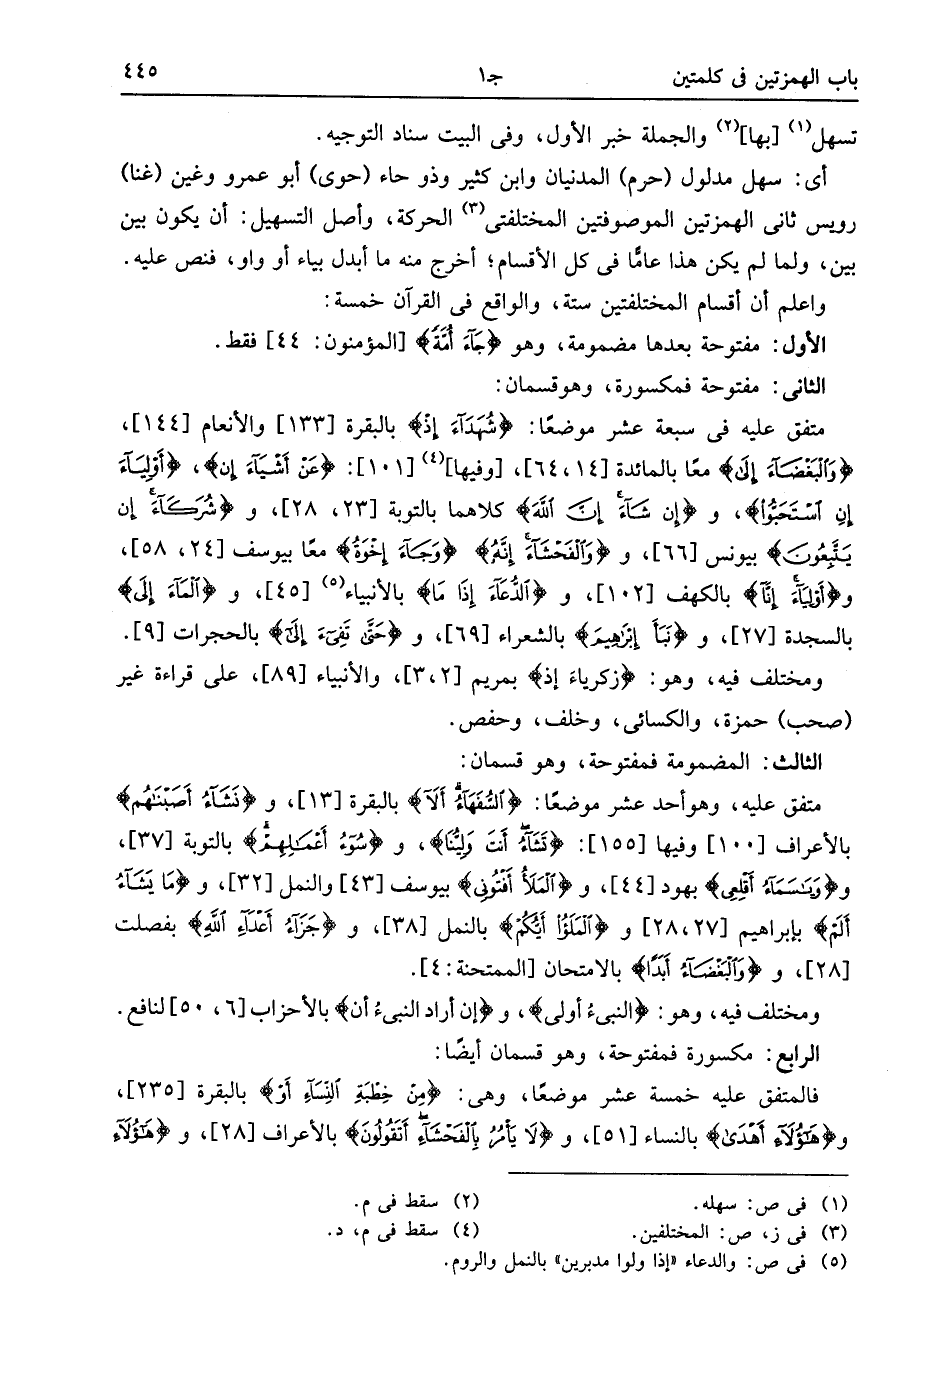 باب الهمزتين فى كلمتين جـ١ ٤٤٥
تسهل(١) [بها](٢) والجملة خبر الأول، وفى البيت سناد التوجيه.
أى: سهل مدلول (حرم) المدنيان وابن كثير وذو حاء (حوى) أبو عمرو وغين (غنا)
رويس ثانى الهمزتين الموصوفتين المختلفتى(٣) الحركة، وأصل التسهيل: أن يكون بين
بين، ولما لم يكن هذا عامًّا فى كل الأقسام؛ أخرج منه ما أبدل بياء أو واو، فنص عليه.
واعلم أن أقسام المختلفتين ستة، والواقع فى القرآن خمسة:
الأول: مفتوحة بعدها مضمومة، وهو ﴿جَآءَ أُمَّةً﴾ [المؤمنون: ٤٤] فقط.
الثانى: مفتوحة فمكسورة، وهوقسمان:
متفق عليه فى سبعة عشر موضعًا: ﴿شُهَدَآءَ إِذْ﴾ بالبقرة [١٣٣] والأنعام [١٤٤]،
﴿وَٱلْبَغْضَآءَ إِلَىٰ﴾ معًا بالمائدة [١٤،٦٤]، [وفيها](٤) [١٠١]: ﴿عَنْ أَشْيَآءَ إِن﴾، ﴿أَوْلِيَآءَ
إِنِ ٱسْتَحَبُّوا۟﴾، و ﴿إِن شَآءَ إِنَّ ٱللَّهَ﴾ كلاهما بالتوبة [٢٣، ٢٨]، و ﴿شُرَكَآءَ إِن
يَتَّبِعُونَ﴾ بيونس [٦٦]، و ﴿وَٱلْفَحْشَآءَ إِنَّهُۥ﴾ ﴿وَجَآءَ إِخْوَةُ﴾ معًا بيوسف [٢٤، ٥٨]،
و﴿أَوْلِيَآءَ إِنَّآ﴾ بالكهف [١٠٢]، و ﴿ٱلدُّعَآءَ إِذَا مَا﴾ بالأنبياء(٥) [٤٥]، و ﴿ٱلْمَآءَ إِلَى﴾
بالسجدة [٢٧]، و ﴿نَبَأَ إِبْرَٰهِيمَ﴾ بالشعراء [٦٩]، و ﴿حَتَّىٰ تَفِىٓءَ إِلَىٰٓ﴾ بالحجرات [٩].
ومختلف فيه، وهو: ﴿زكرياءَ إذ﴾ بمريم [٢،٣]، والأنبياء [٨٩]، على قراءة غير
(صحب) حمزة، والكسائى، وخلف، وحفص.
الثالث: المضمومة فمفتوحة، وهو قسمان:
متفق عليه، وهوأحد عشر موضعًا: ﴿ٱلسُّفَهَآءُ أَلَآ﴾ بالبقرة [١٣]، و ﴿نَشَآءُ أَصَبْنَٰهُم﴾
بالأعراف [١٠٠] وفيها [١٥٥]: ﴿تَشَآءُ أَنتَ وَلِيُّنَا﴾، و ﴿سُوٓءُ أَعْمَٰلِهِمْ﴾ بالتوبة [٣٧]،
و﴿وَيَٰسَمَآءُ أَقْلِعِى﴾ بهود [٤٤]، و ﴿ٱلْمَلَأُ أَفْتُونِى﴾ بيوسف [٤٣] والنمل [٣٢]، و ﴿مَا يَشَآءُ
أَلَمْ﴾ بإبراهيم [٢٧،٢٨] و ﴿ٱلْمَلَؤُا۟ أَيُّكُمْ﴾ بالنمل [٣٨]، و ﴿جَزَآءُ أَعْدَآءِ ٱللَّهِ﴾ بفصلت
[٢٨]، و ﴿وَٱلْبَغْضَآءُ أَبَدًا﴾ بالامتحان [الممتحنة:٤].
ومختلف فيه، وهو: ﴿النبىءُ أولى﴾، و ﴿إن أراد النبىءُ أن﴾ بالأحزاب [٦، ٥٠] لنافع.
الرابع: مكسورة فمفتوحة، وهو قسمان أيضًا:
فالمتفق عليه خمسة عشر موضعًا، وهى: ﴿مِنْ خِطْبَةِ ٱلنِّسَآءِ أَوْ﴾ بالبقرة [٢٣٥]،
و﴿هَٰٓؤُلَآءِ أَهْدَىٰ﴾ بالنساء [٥١]، و ﴿لَا يَأْمُرُ بِٱلْفَحْشَآءِ أَتَقُولُونَ﴾ بالأعراف [٢٨]، و ﴿هَٰٓؤُلَآءِ
(١) فى ص: سهله. (٢) سقط فى م.
(٣) فى ز، ص: المختلفين. (٤) سقط فى م، د.
(٥) فى ص: والدعاء «إذا ولوا مدبرين» بالنمل والروم.